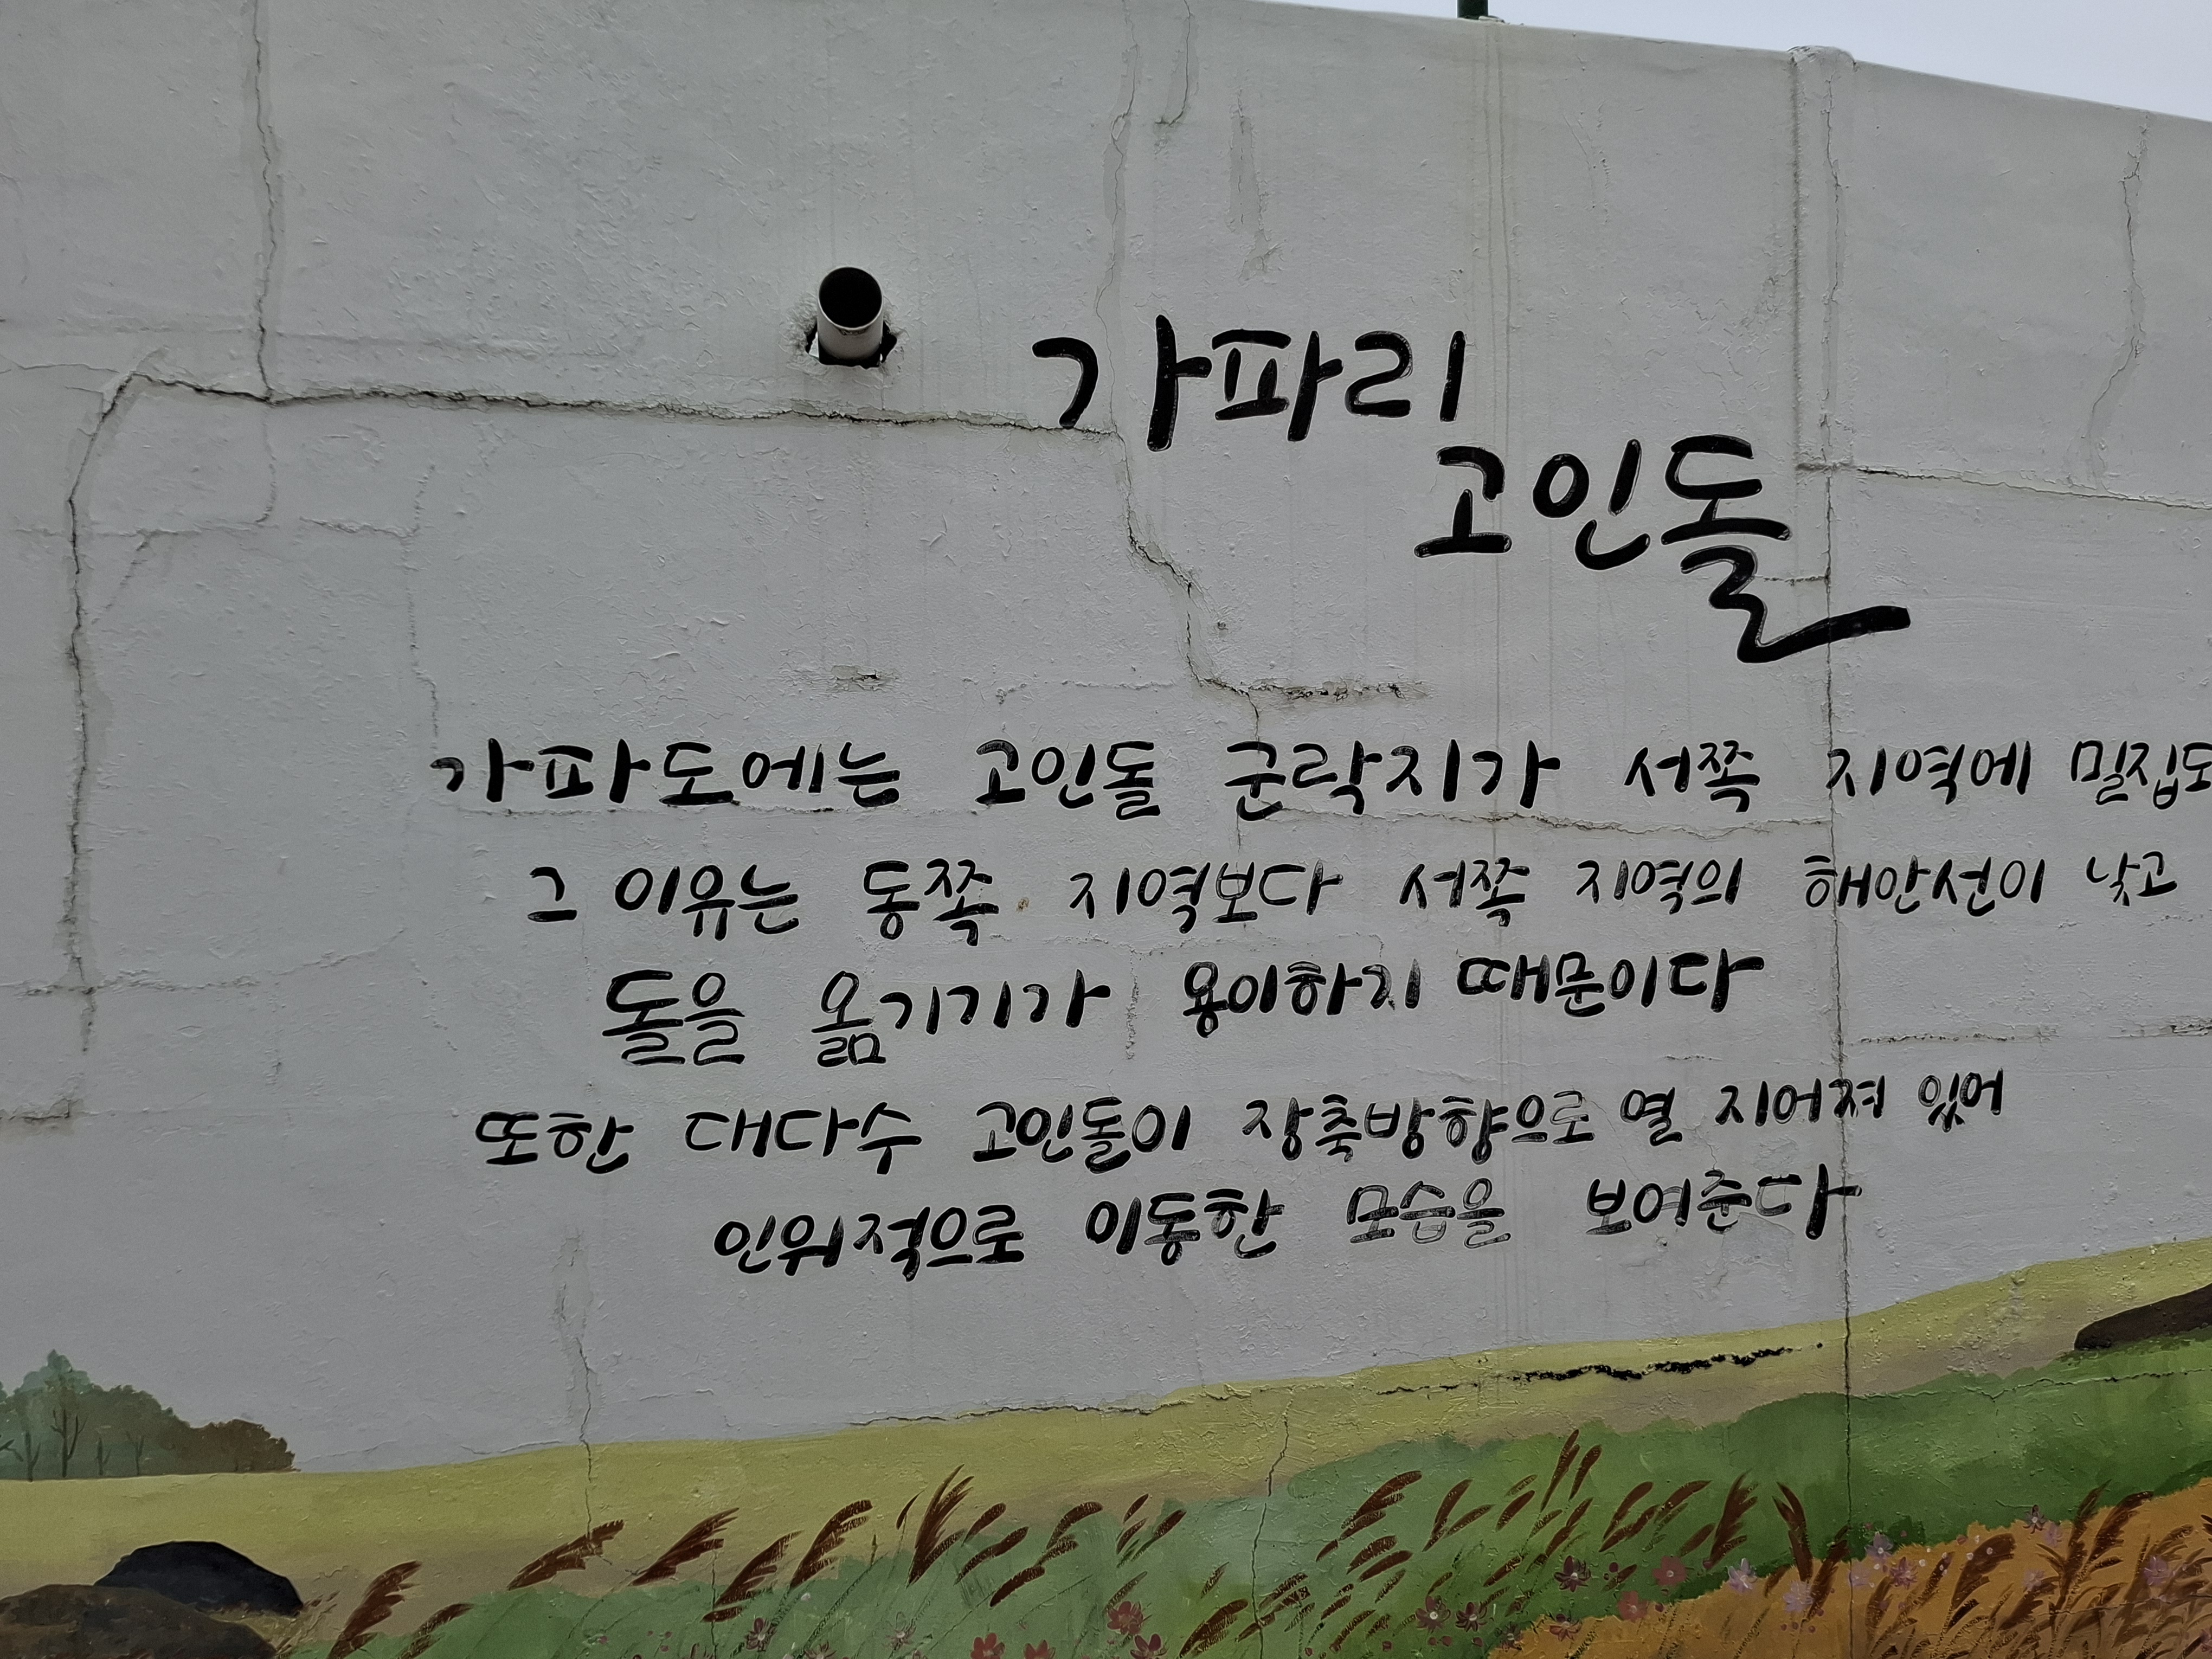 가파리
고인돌
가파도에는 고인돌 군락지가 서쪽 지역에
그 이유는 동쪽 지역보다 서쪽 지역의 해안선이 낮고
돌을 옮기기가 용이하기 때문이다
또한 대다수 고인돌이 장축방향으로 열 지어져 있어
인위적으로 이동한 모습을 보여준다